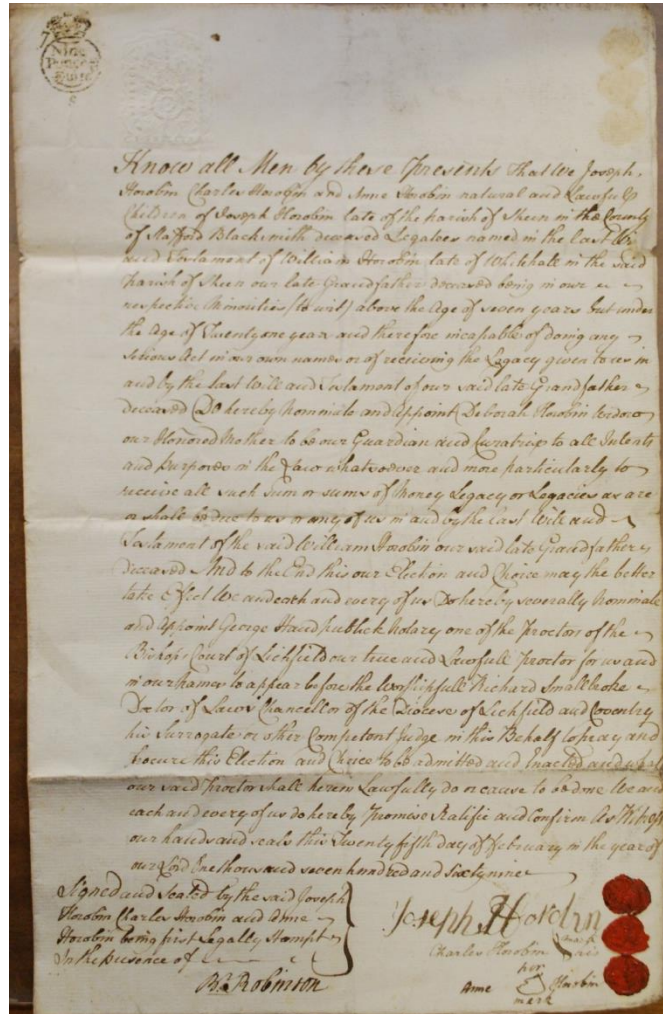 Nine
Pence
Know all Men by these Presents That We Joseph
Horobin Charles Horobin and Anne Horobin natural and Lawfull
Children of Joseph Horobin late of the Parish of Sheen in the County
of Stafford Blacksmith deceased Legatees named in the last Wi
and Testament of William Horobin late of Whitehall in the said
Parish of Sheen our late Grandfather deceased being in our
respective Minorities (to wit) above the Age of seven years but under
the Age of Twenty one years and therefore incapable of doing any
serious Act in our own names or of receiving the Legacy given to us in
and by the last Will and Testament of our said late Grandfather
deceased Do hereby Nominate and Appoint Deborah Horobin Widow
our Honored Mother to be our Guardian and Curatrix to all Intents
and purposes in the Law whatsoever and more particularly to
receive all such Sum or sums of Money Legacy or Legacies as are
or shall be due to us or any of us in and by the last Will and
Testament of the said William Horobin our said late Grandfather
deceased And to the End this our Election and Choice may the better
take Effect We and each and every of us Do hereby severally Nominate
and Appoint George Hand publick Notary one of the Proctors of the
Bishops Court of Lichfield our true and Lawfull Proctor for us and
in our Names to appear before the Worshipfull Richard Smalbroke
Doctor of Laws Chancellor of the Diocese of Lichfield and Coventry
his Surrogate or other Competent Judge in this Behalf to pray and
procure this Election and Choice to be admitted and Enacted and what
our said Proctor shall herein Lawfully do or cause to be done We and
each and every of us do hereby Promise Ratifie and Confirm As Witness
our hands and seals this Twenty fifth day of February in the year of
our Lord One thousand seven hundred and Sixty nine
Signed and Sealed by the said Joseph
Horobin Charles Horobin and Anne
Horobin being first Legally Stampt
In the presence of
Robinson
Joseph
Charles Horobin
her
Anne Horobin
mark